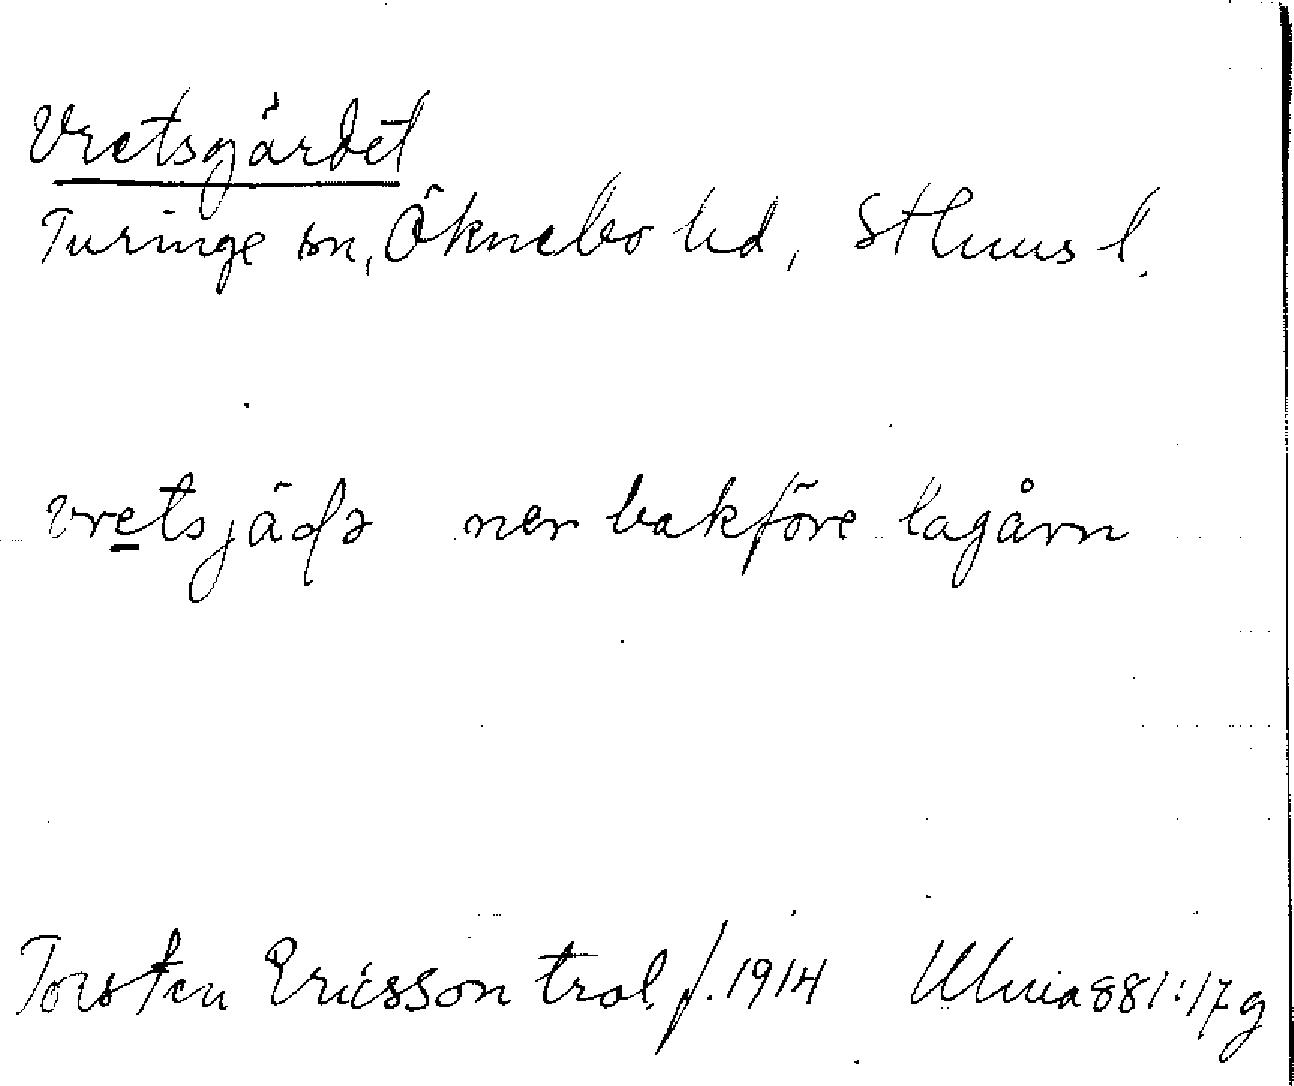 Vretsgärdet
Turinge sn, Öknebo hd, Sthms l.
vretsjäḍə ner bakföre lagårn
Torsten Ericsson trol. f. 1914 Ulma 881:17 g